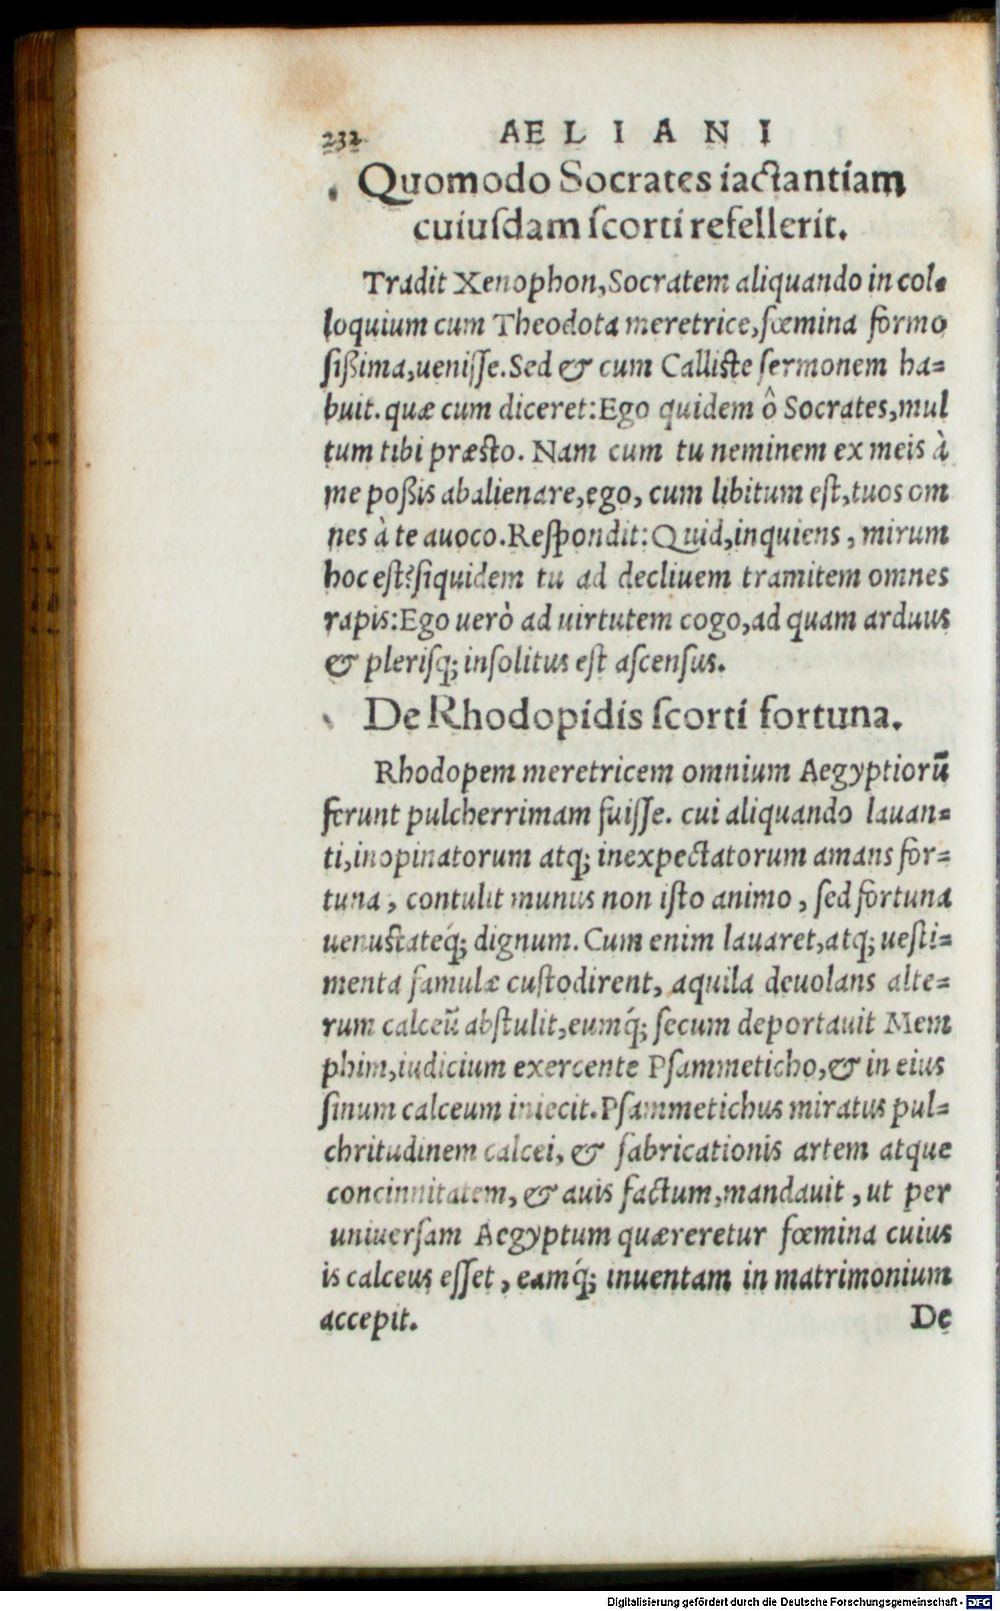 232 AELIANI
Quomodo Socrates iactantiam
cuiuſdam ſcorti refellerit.
Tradit Xenophon, Socratem aliquando in col-
loquium cum Theodota meretrice, fœmina formo
ſißima, ueniſſe. Sed & cum Calliſte ſermonem ha=
buit. quæ cum diceret: Ego quidem ô Socrates, mul
tum tibi præſto. Nam cum tu neminem ex meis à
me poßis abalienare, ego, cum libitum eſt, tuos om
nes à te auoco. Reſpondit: Quid, inquiens, mirum
hoc eſt? ſiquidem tu ad decliuem tramitem omnes
rapis: Ego uerò ad uirtutem cogo, ad quam arduus
& pleriſq; inſolitus eſt aſcenſus.
De Rhodopidis ſcorti fortuna.
Rhodopem meretricem omnium Aegyptiorū
ferunt pulcherrimam fuiſſe. cui aliquando lauan=
ti, inopinatorum atq; inexpectatorum amans for=
tuna, contulit munus non iſto animo, ſed fortuna
uenuſtateq́; dignum. Cum enim lauaret, atq; ueſti=
menta famulæ cuſtodirent, aquila deuolans alte=
rum calceū abſtulit, eumq́; ſecum deportauit Mem
phim, iudicium exercente Pſammeticho, & in eius
ſinum calceum iniecit. Pſammetichus miratus pul=
chritudinem calcei, & fabricationis artem atque
concinnitatem, & auis factum, mandauit, ut per
uniuerſam Aegyptum quæreretur fœmina cuius
is calceus eſſet, eamq́; inuentam in matrimonium
accepit. De
Digitalisierung gefördert durch die Deutsche Forschungsgemeinschaft - DFG